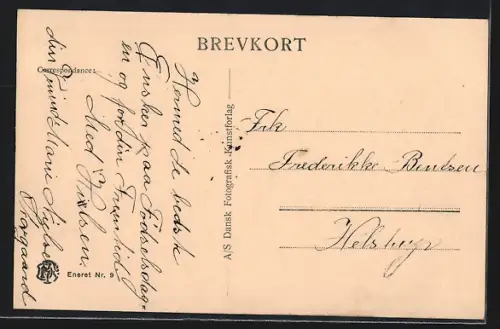 BREVKORT
Correspondance:
Hermed de bedste
Ønsker paa Fødselsdag-
en og for din Fremtid.
Med Hilsen
din Veninde Marie
A/S Dansk Fotografisk Kunstforlag
Eneret Nr. 9
Frk
Frederikke Bentzen